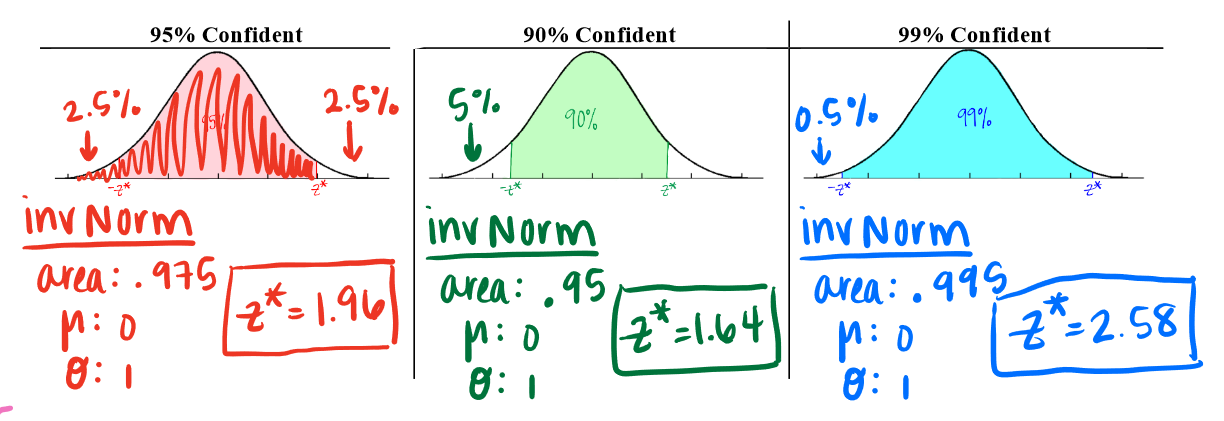 95% Confident
2.5%
2.5%
95%
-z*
z*
invNorm
area: .975
μ: 0
σ: 1
z*=1.96
90% Confident
5%
90%
-z*
z*
invNorm
area: .95
μ: 0
σ: 1
z*=1.64
99% Confident
0.5%
99%
-z*
z*
invNorm
area: .995
μ: 0
σ: 1
z*=2.58